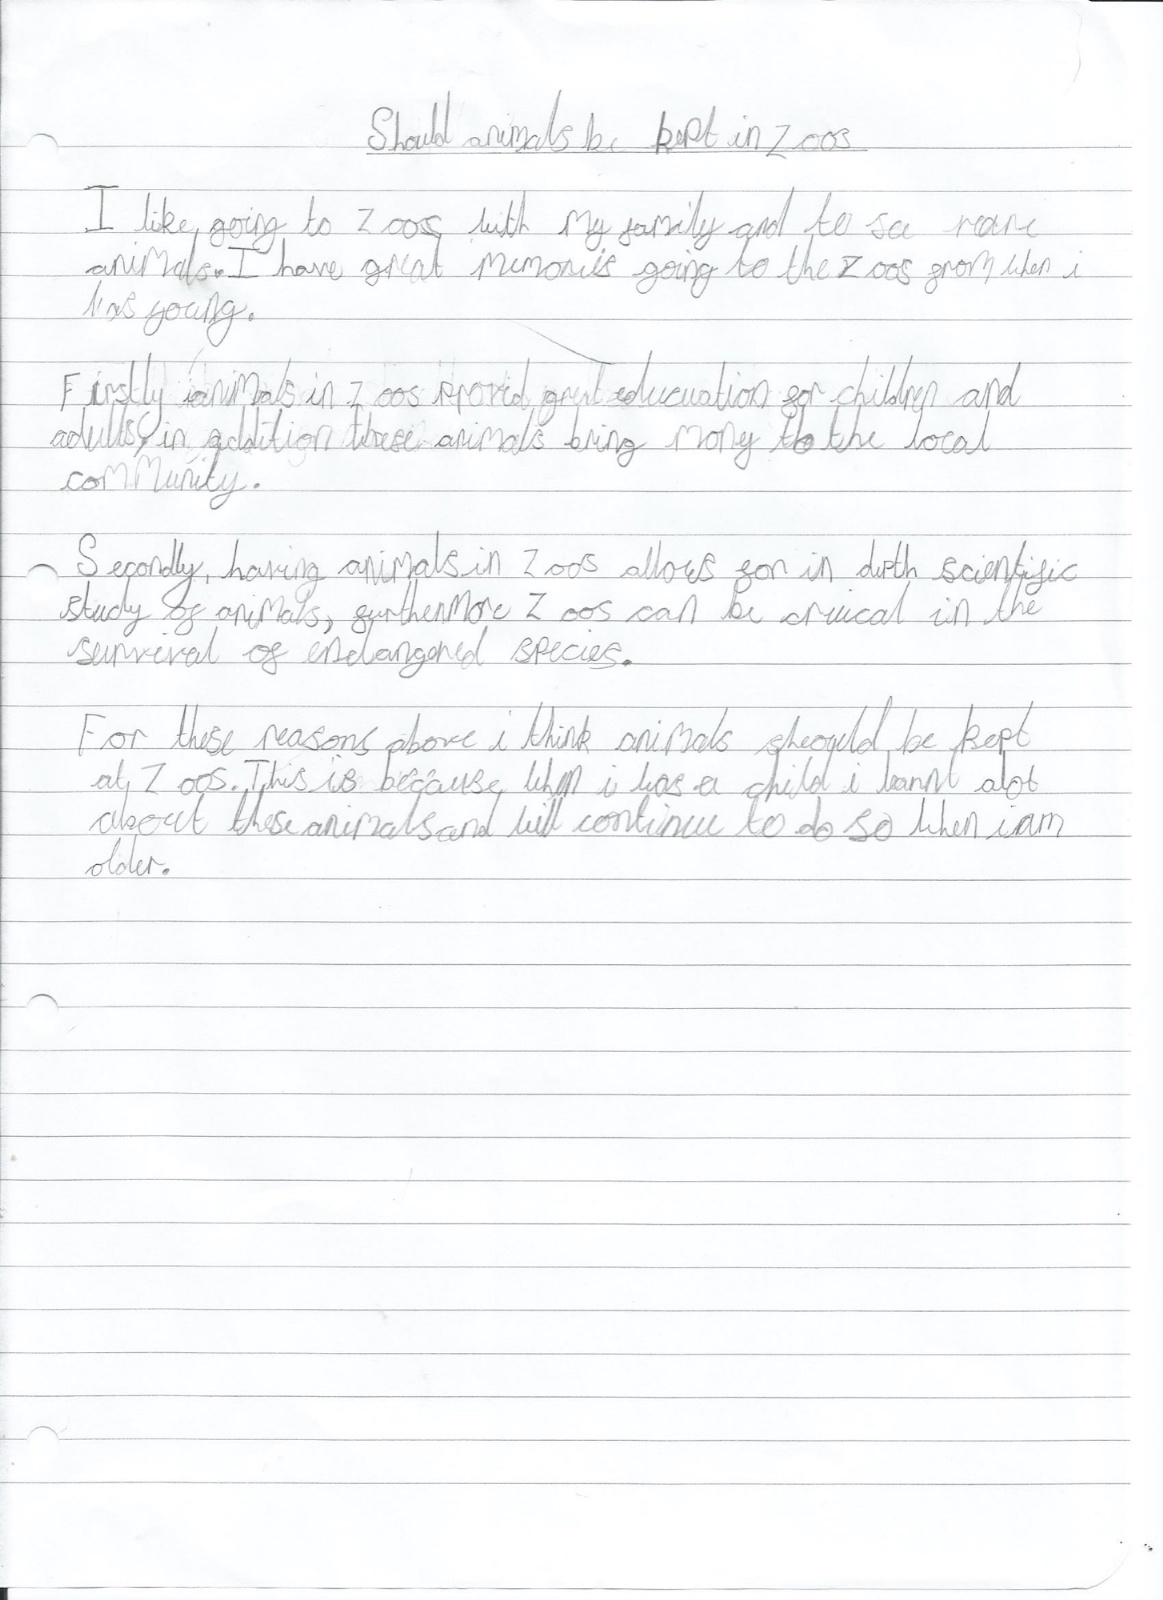 Should animals be kept in zoos
I like going to zoos with my family and to see rare
animals. I have great memories going to the zoos from when i
was young.
Firstly animals in zoos provid great educuation for children and
adults, in addition these animals bring mony to the local
community.
Secondly, having animals in zoos allows for in depth scientific
study of animals, furthermore zoos can be cruical in the
survival of endangered species.
For these reasons above i think animals should be kept
at zoos. This is because when i was a child i learnt alot
about these animals and will continue to do so when i am
older.